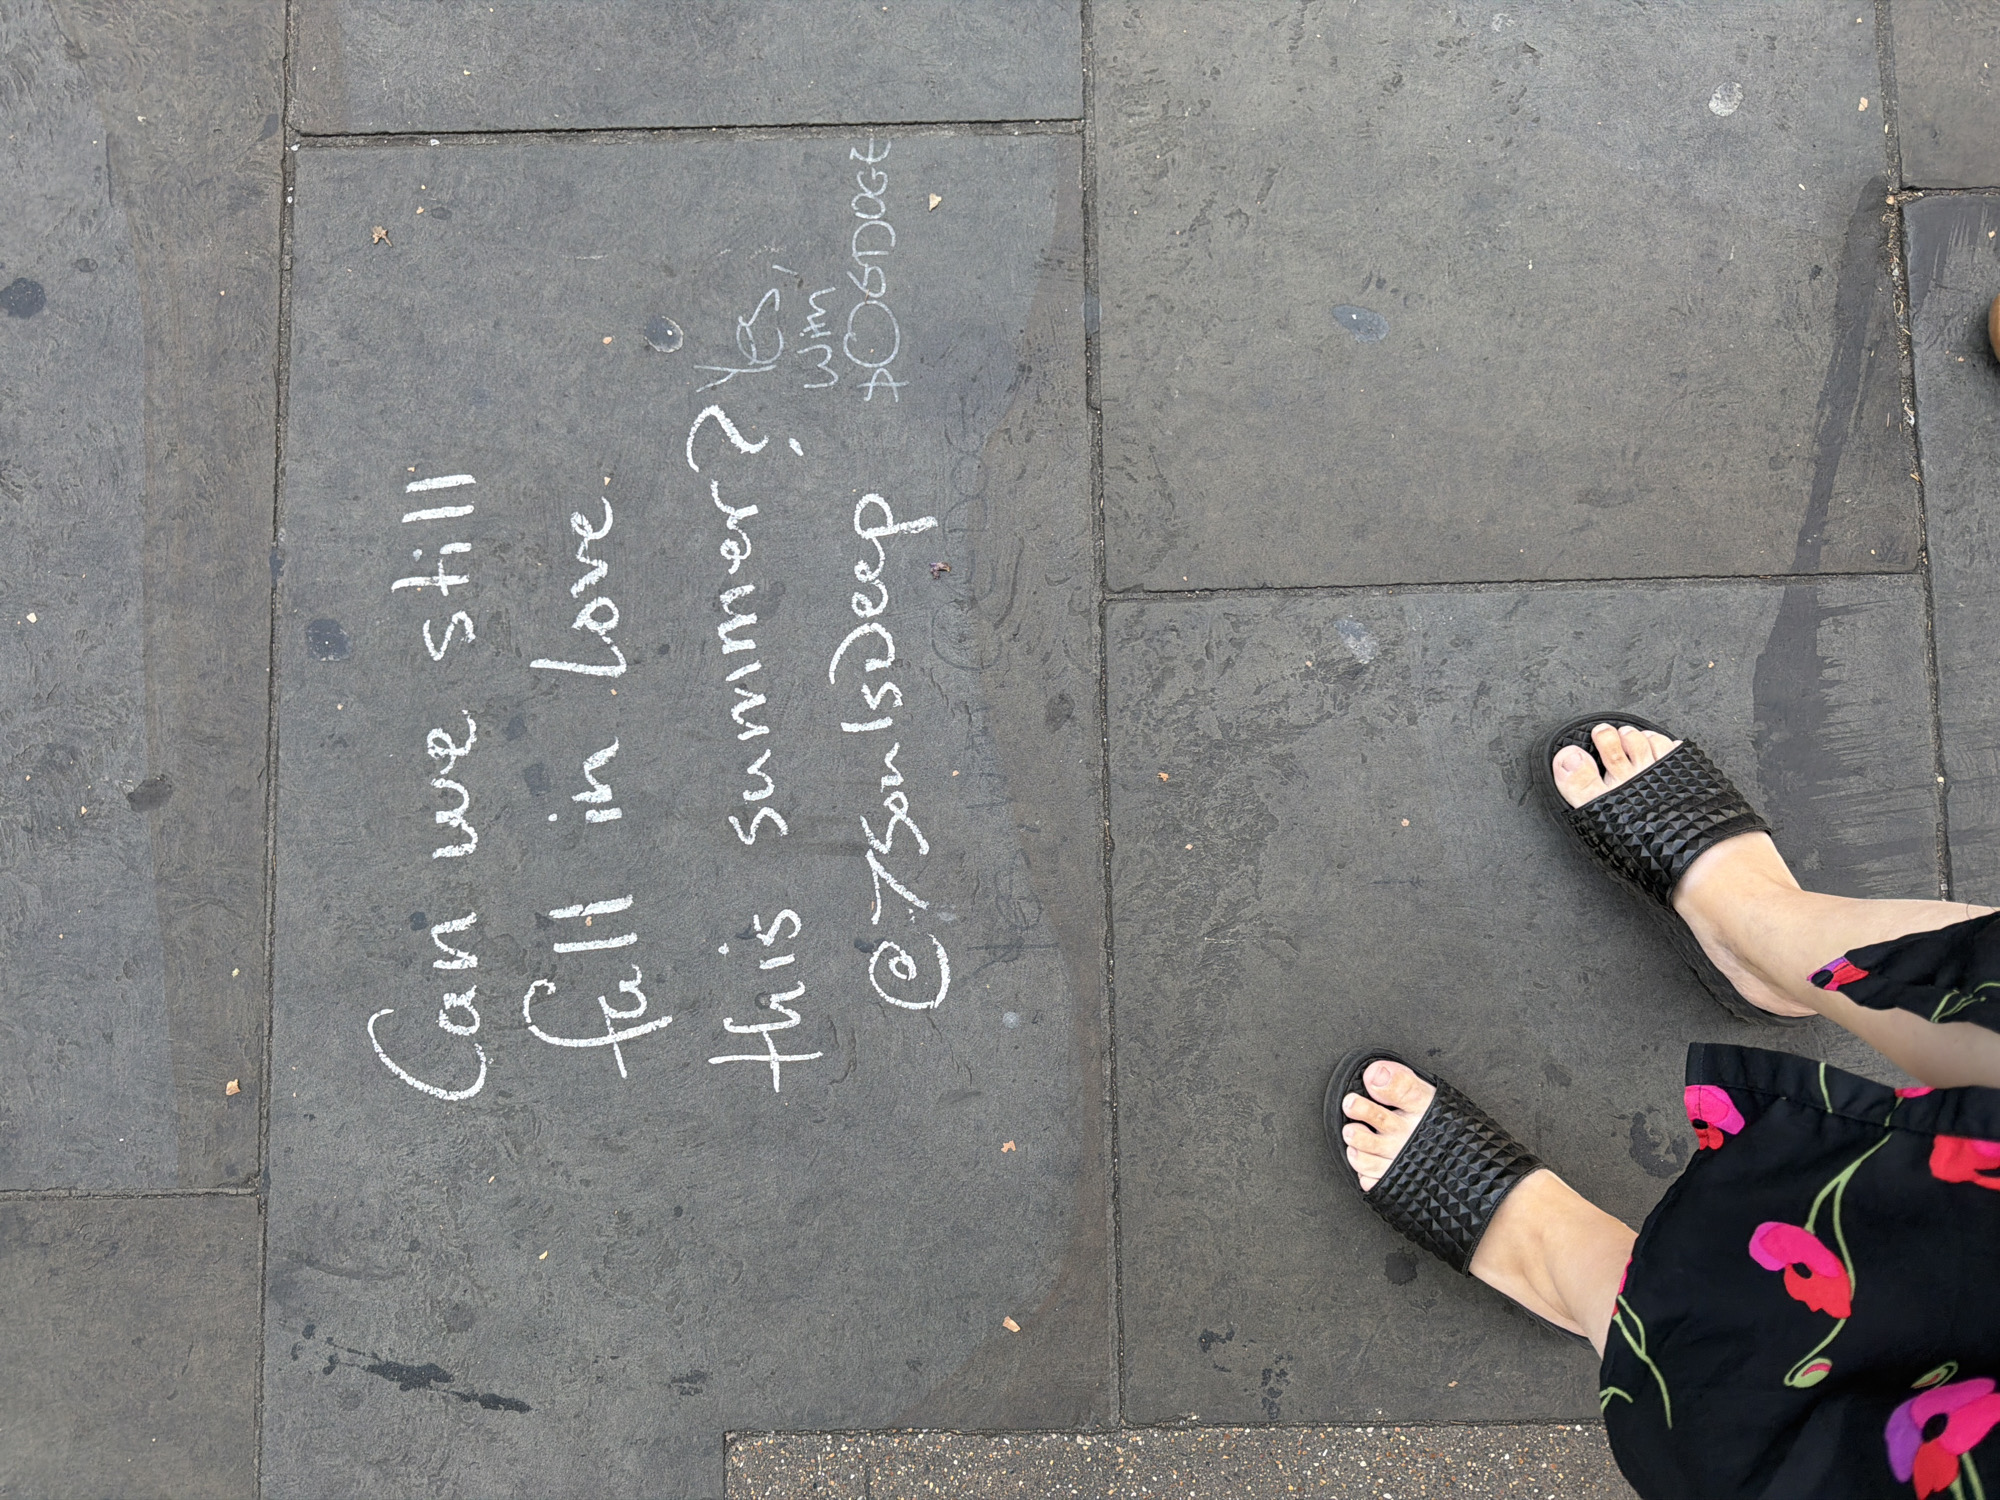 Can we still
fall in love
this summer?
@TSouIsDeep
Yes,
with
DOGEDOGE